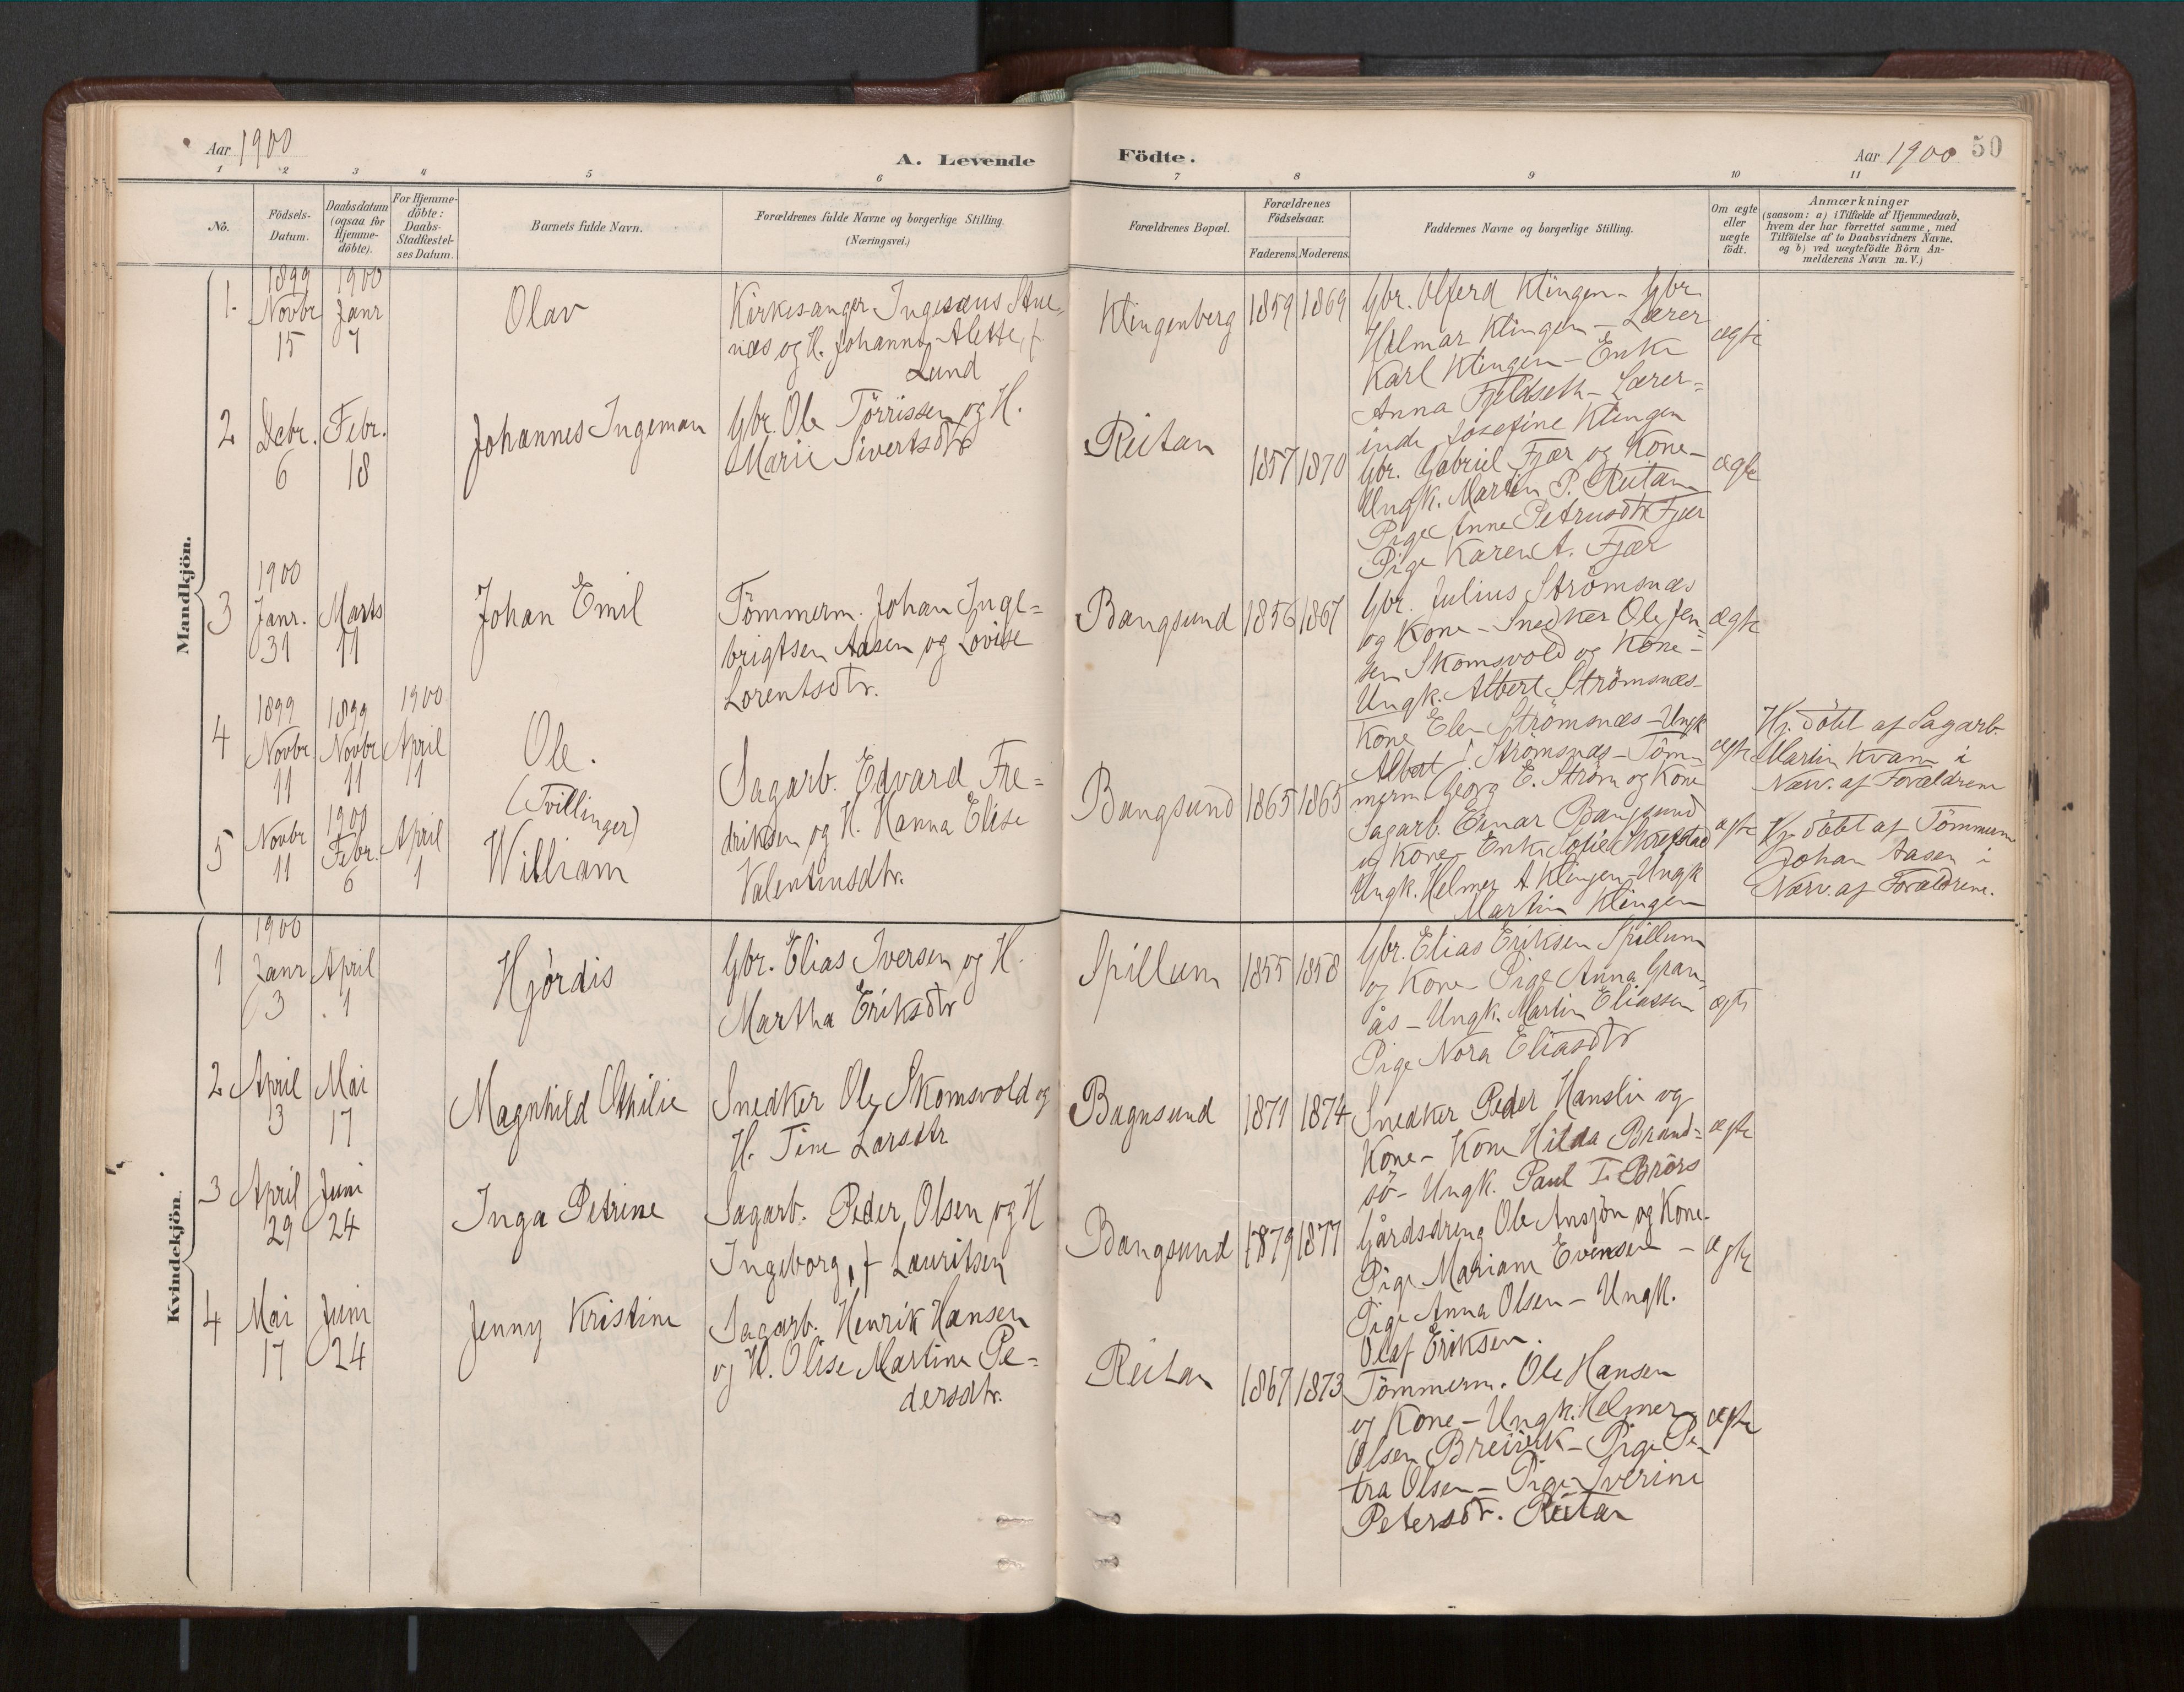 Aar 1900
A. Levende
Födte.
Aar 1900 50
1 2 3 4 5 6 7 8 9 10 11
No.
Födsels-
Datum.
Daabsdatum
(ogsaa for
Hjemme-
döbte).
For Hjemme-
döbte:
Daabs-
Stadfestel-
ses Datum.
Barnets fulde Navn.
Forældrenes fulde Navne og borgerlige Stilling.
(Næringsvei.)
Forældrenes Bopæl.
Forældrenes
Födselsaar.
Faderens. Moderens.
Faddernes Navne og borgerlige Stilling.
Om ægte
eller
uægte
födt.
Anmærkninger
(saasom: a) i Tilfælde af Hjemmedaab,
hvem der har forrettet samme, med
Tilföielse af to Daabsvidners Navne,
og b) ved uægtefödte Börn An-
melderens Navn m. V.)
Mandkjön.
1.
1899
Novbr
15
1900
Janr
7
Olav
Kirkesanger Ingesæus Stue-
næs og H. Johanna Alette, f.
Lund
Klingenberg
1859 1869
Gbr. Olferd Klingen - Gbr.
Helmar Klingen - Lærer
Karl Klingen - Enke
Anna Fjeldseth - Lærer=
inde Josefine Klingen
ægte
2
Debr.
6
Febr.
18
Johannes Ingeman
Gbr. Ole Törrissen og H.
Marie Sivertsdtr
Reitan
1857 1870
Gbr. Gabriel Fjær og Kone -
Ungk. Martin P. Reitan
Pige Anne Petrusdtr Fjær
Pige Karen A. Fjær
ægte
3
1900
Janr.
31
Marts
11
Johan Emil
Tömmerm. Johan Inge=
brigtsen Aasen og Lovise
Lorentsdtr.
Bangsund
1856 1867
Gbr. Julius Strömsnæs
og Kone - Snedker Ole Jen=
sen Skomsvold og Kone -
Ungk. Albert Strömsnæs -
ægte
4
1899
Novbr
11
1899
Novbr
11
1900
April
11
Ole.
(Tvillinger)
Sagarb. Edvard Fre=
driksen og H. Hanna Elise
Valentinsdtr.
Bangsund
1865 1865
Kone Elen Strömsnæs - Ungk
Albert J Strömsnæs - Töm=
merm. Georg E. Ström og Kone
Sagarb. Einar Bangsund
og Kone - Enke Sofie
Ungk. Helmer A Klingen - Ungk
Martin Klingen
ægte
Hj. döbt af Sagarb.
Martin Kvam i
Nærv. af Forældrene
5
Novbr
11
1900
Febr.
6
April
1
William
ægte
Hj. döbt af Tömmerm
Johan Aasen i
Nærv. af Forældrene.
Kvindekjön.
1
1900
Janr
3
April
1
Hjördis
Gbr. Elias Iversen og H.
Martha Eriksdtr
Spillum
1855 1858
Gbr. Elias Eriksen Spillum
og Kone - Pige Anna Gran-
ås - Ungk. Martin Eliassen
Pige Nora Eliasdtr
ægte
2
April
3
Mai
17
Magnhild Othilie
Snedker Ole Skomsvold og
H. Tine Larsdtr
Bagnsund
1871 1874
Snedker Peder Hanslin og
Kone - Kone Hilda Brand=
sö - Ungk. Paul T. Brörs
ægte
3
April
29
Juni
24
Inga Petrine
Sagarb. Peder Olsen og H
Ingeborg, f Lauritsen
Bangsund
1879 1877
Gårdsdreng Ole Ansjön og Kone -
Pige Mariane Evensen -
Pige Anna Olsen - Ungk.
Olaf Eriksen.
ægte
4
Mai
17
Juni
24
Jenny Kristine
Sagarb. Henrik Hansen
og H. Olise Martine Pe=
dersdtr.
Reitan
1867 1873
Tömmerm. Ole Hansen
og Kone - Ungk. Helmer
Olsen Breivik - Pige Pe-
tra Olsen - Pige Iverine
Petersdr. Reitan
ægte